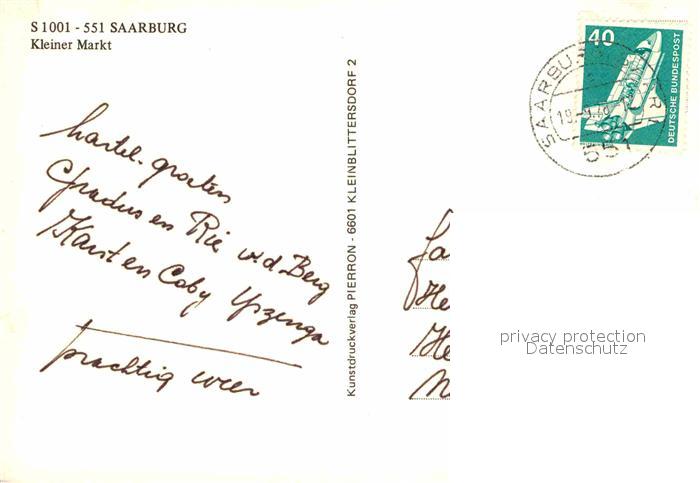 S 1001 - 551 SAARBURG
Kleiner Markt
hartel. groeten
Gradus en Rie v.d. Berg
Karst en Coby Ypzenga
prachtig weer
Kunstdruckverlag PIERRON - 6601 KLEINBLITTERSDORF 2
40
DEUTSCHE BUNDESPOST
551
fa
He
He
privacy protection
Datenschutz